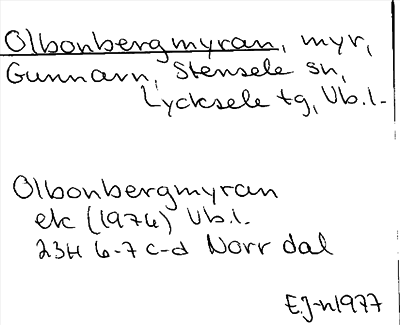 Olbonbergmyran, myr,
Gunnarn, Stensele sn,
Lycksele tg, Vb.l.
Olbonbergmyran
ek (1974) Vb.l.
23H 6-7 c-d Norr dal
E.J-n 1977